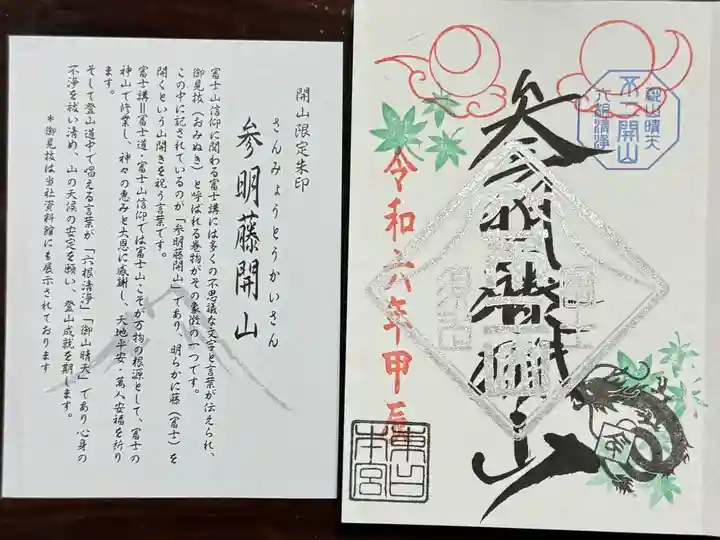 開山限定朱印
さんみょうとうかいさん
参明藤開山
富士山信仰に関わる富士講には多くの不思議な文字と言葉が伝えられ、
御見抜(おみぬき)と呼ばれる巻物がその象徴の一つです。
この中に記されているのが「参明藤開山」であり、明らかに藤(富士)を
開くという山開きを祝う言葉です。
富士講=富士道・富士山信仰では富士山こそが万物の根源として、富士の
神山で修業し、神々の恵みと大恩に感謝し、天地平安・萬人安福を祈り
ます。
そして登山道中で唱える言葉が「六根清浄」「御山晴天」であり心身の
不浄を祓い清め、山の天候の安定を願い、登山成就を期します。
*御見抜は当社資料館にも展示されております
御山晴天
不二開山
六根清浄
参明藤開山
令和六年甲辰
東口
本宮